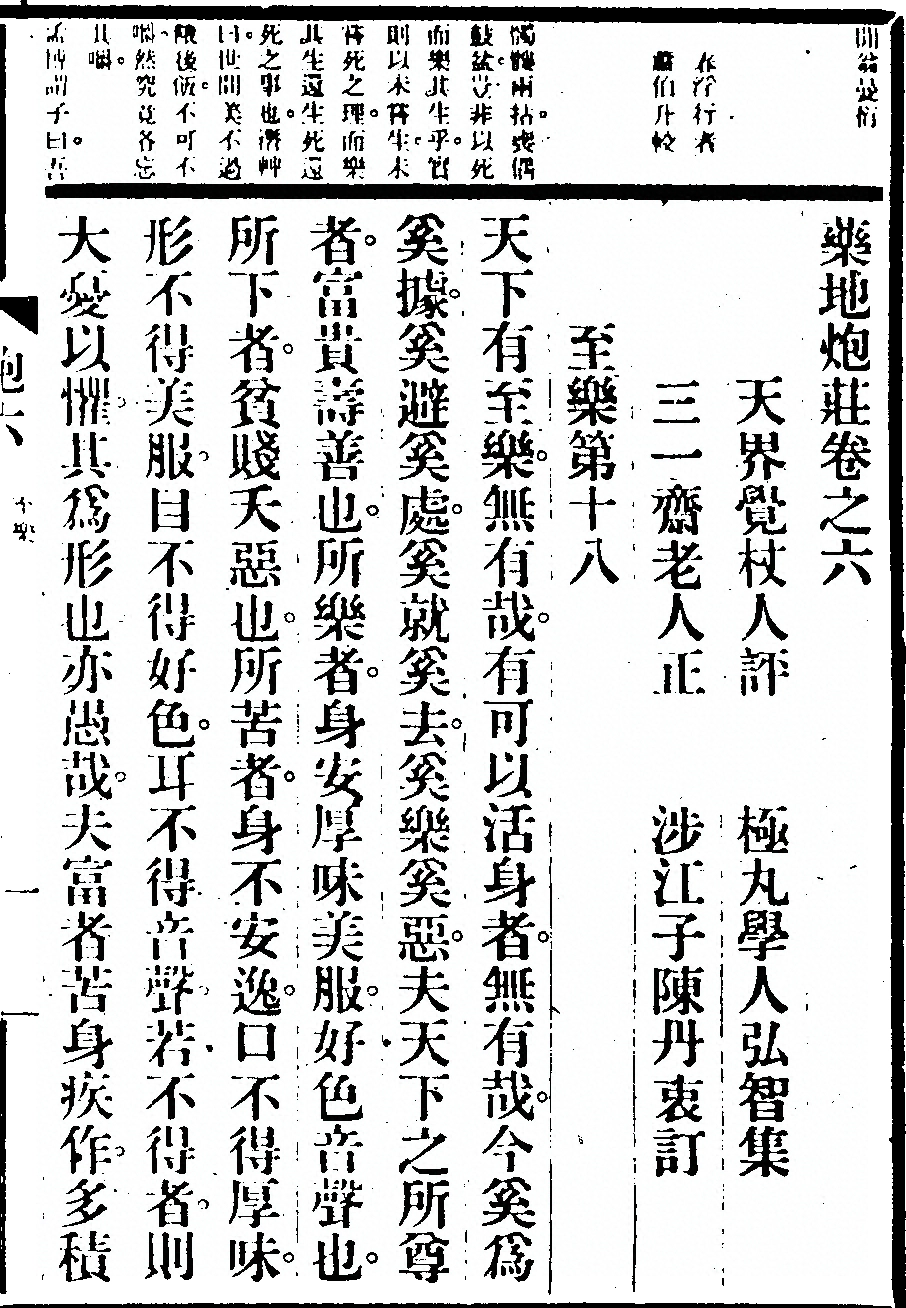 閒翁曼衍
春浮行者
蕭伯升較
髑髏兩括喪偶
鼓盆豈非以死
而樂其生乎實
則以未嘗生未
嘗死之理而樂
其生還生死還
死之事也
曰世間美不過
飯後飯不可不
嚼然究竟各忘
其嚼
孟博謂子曰吾
藥地炮莊卷之六
天界覺杖人評 極丸學人弘智集
三一齋老人正 涉江子陳丹衷訂
至樂第十八
天下有至樂無有哉有可以活身者無有哉今奚為
奚據奚避奚處奚就奚去奚樂奚惡夫天下之所尊
者富貴壽善也所樂者身安厚味美服好色音聲也
所下者貧賤夭惡也所苦者身不安逸口不得厚味
形不得美服目不得好色耳不得音聲若不得者則
大憂以懼其爲形也亦愚哉夫富者苦身疾作多積
炮六
一